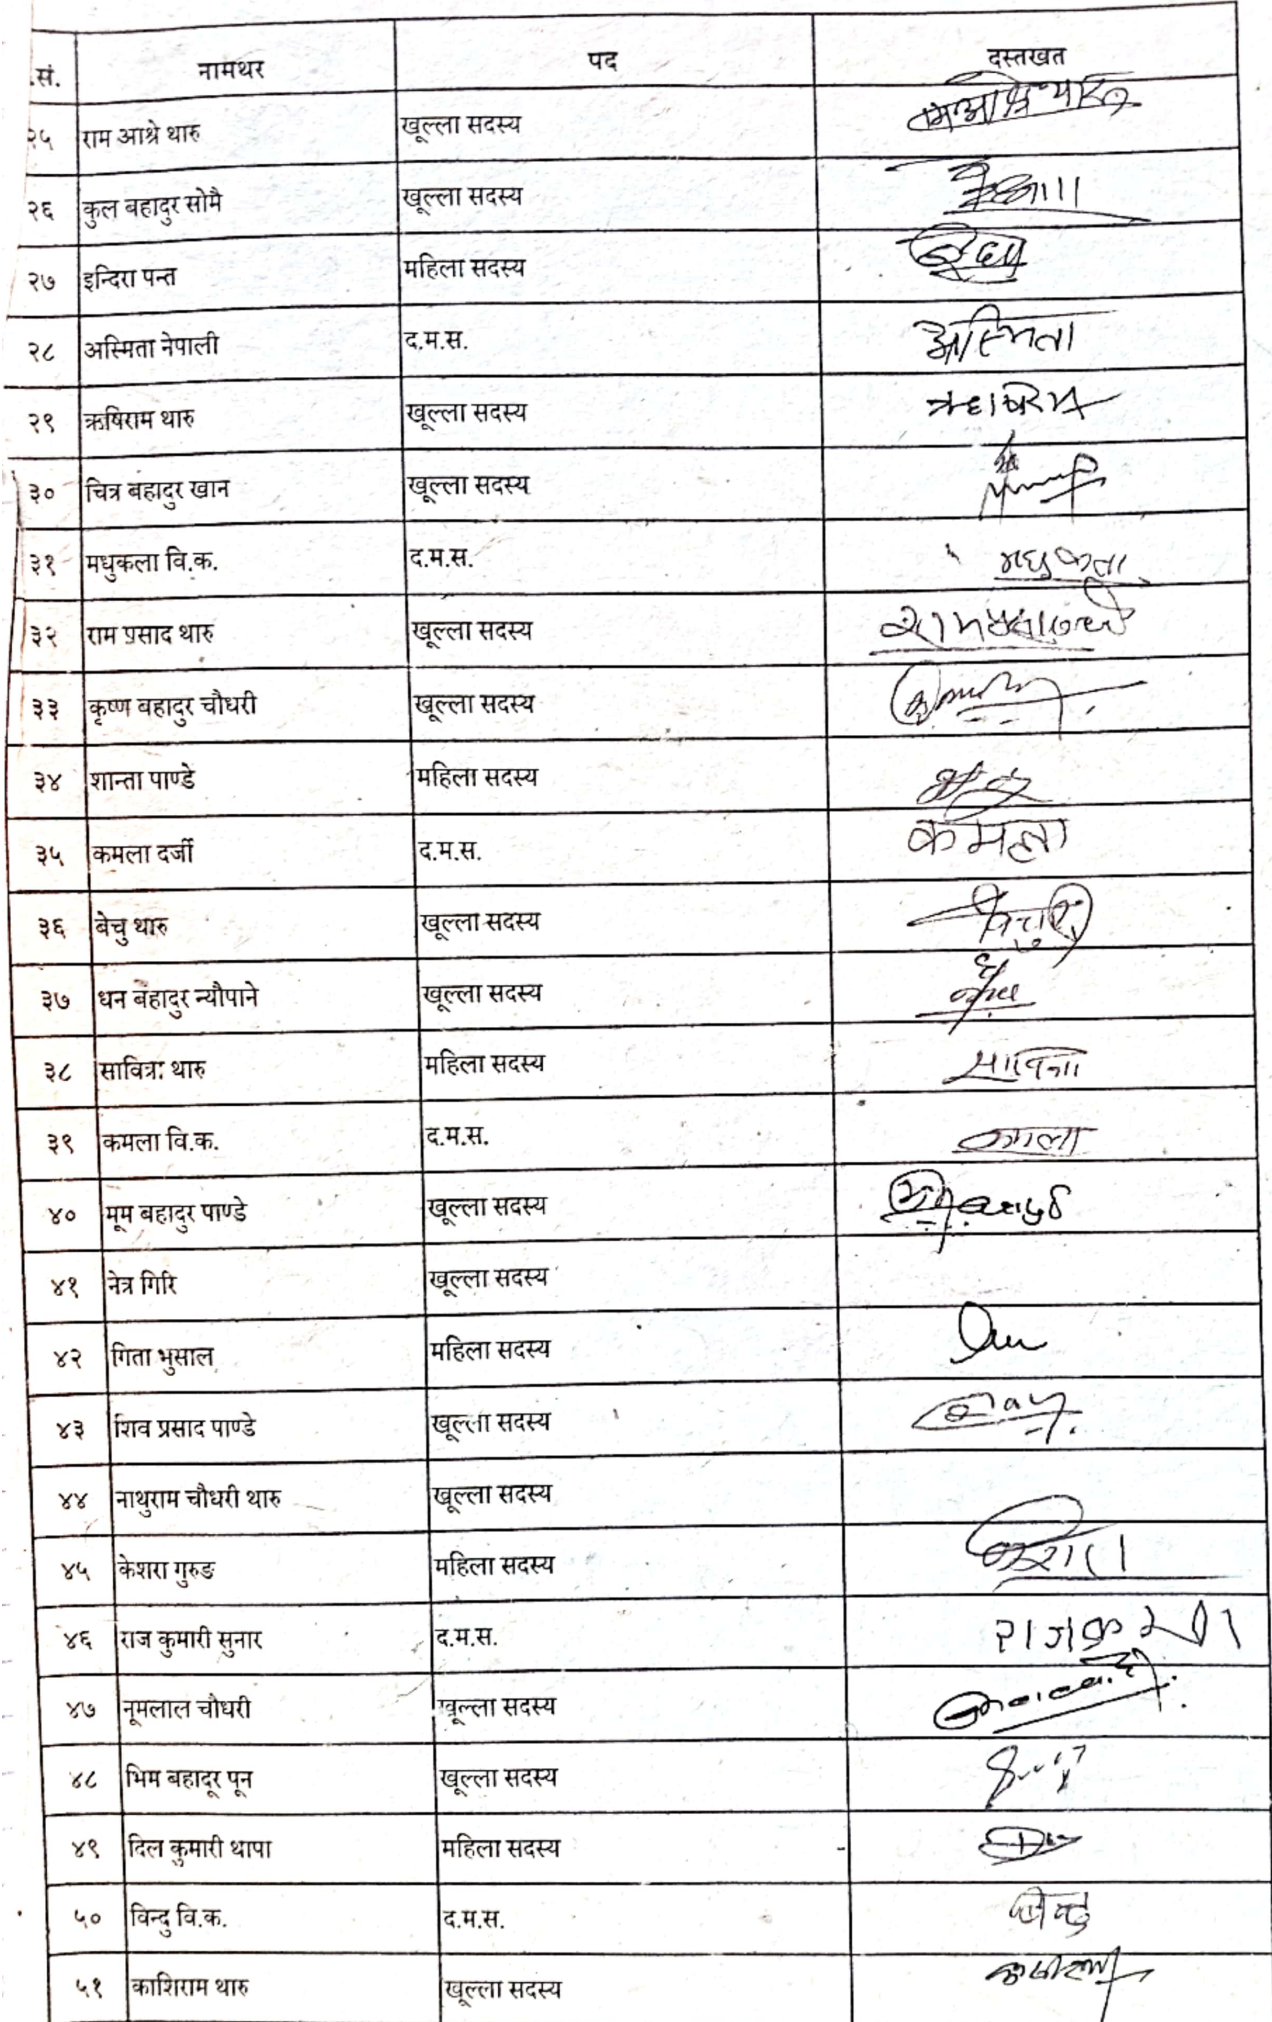 .सं. नामथर पद दस्तखत
२५ राम आश्रे थारु खूल्ला सदस्य
२६ कुल बहादुर सोमै खूल्ला सदस्य
२७ इन्दिरा पन्त महिला सदस्य
२८ अस्मिता नेपाली द.म.स. अस्मिता
२९ ऋषिराम थारु खूल्ला सदस्य
३० चित्र बहादुर खान खूल्ला सदस्य
३१ मधुकला वि.क. द.म.स.
३२ राम प्रसाद थारु खूल्ला सदस्य
३३ कृष्ण बहादुर चौधरी खूल्ला सदस्य
३४ शान्ता पाण्डे महिला सदस्य
३५ कमला दर्जी द.म.स. कमिला
३६ बेचु थारु खूल्ला सदस्य
३७ धन बहादुर न्यौपाने खूल्ला सदस्य
३८ सावित्रा थारु महिला सदस्य
३९ कमला वि.क. द.म.स. कमला
४० मूम बहादुर पाण्डे खूल्ला सदस्य
४१ नेत्र गिरि खूल्ला सदस्य
४२ गिता भुसाल महिला सदस्य
४३ शिव प्रसाद पाण्डे खूल्ला सदस्य
४४ नाथुराम चौधरी थारु खूल्ला सदस्य
४५ केशरा गुरुङ महिला सदस्य
४६ राज कुमारी सुनार द.म.स.
४७ नूमलाल चौधरी खूल्ला सदस्य
४८ भिम बहादूर पून खूल्ला सदस्य
४९ दिल कुमारी थापा महिला सदस्य
५० विन्दु वि.क. द.म.स.
५१ काशिराम थारु खूल्ला सदस्य